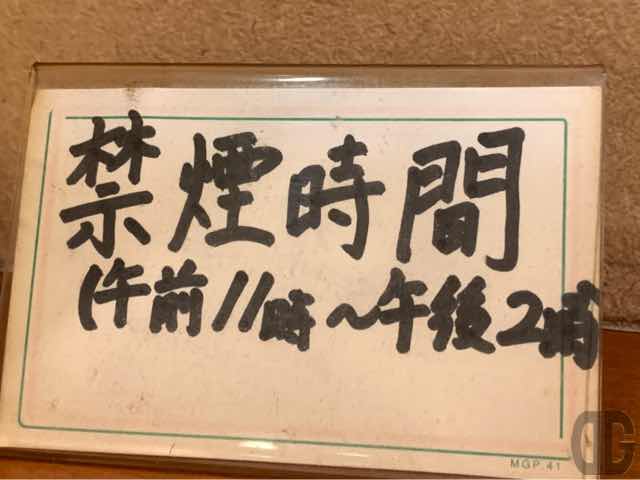 禁煙時間
(午前11時~午後2時
MGP.41
DG